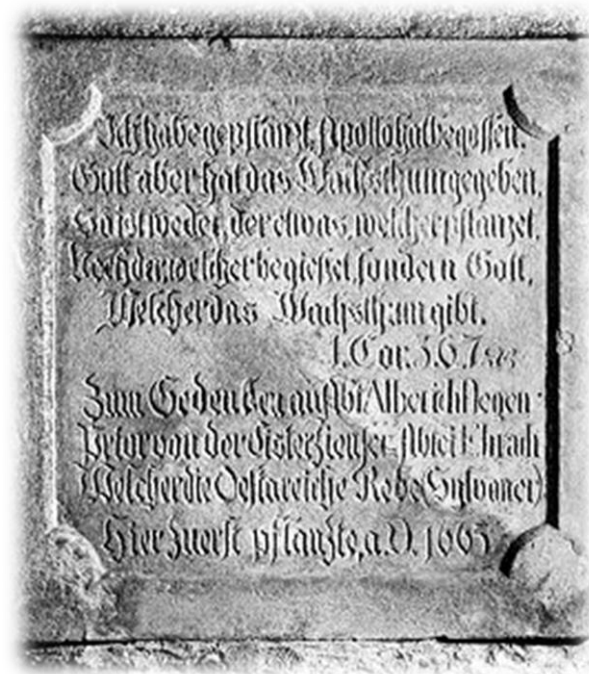 Ich habe gepflanzt, Apollo hat begossen,
Gott aber hat das Wachsthum gegeben,
So ist weder, der etwas, welcher pflanzet,
Noch der, welcher begiesset, sondern Gott,
Welcher das Wachsthum gibt.
1. Cor. 3. 6. 7
Zum Gedenken an Abt Alberich Degen
Petor von der Cisterzienser-Abtei Ebrach
(Welcher die Oestareiche Rebe (Sylvaner)
Hier zuerst pflanzte, a. D. 1665